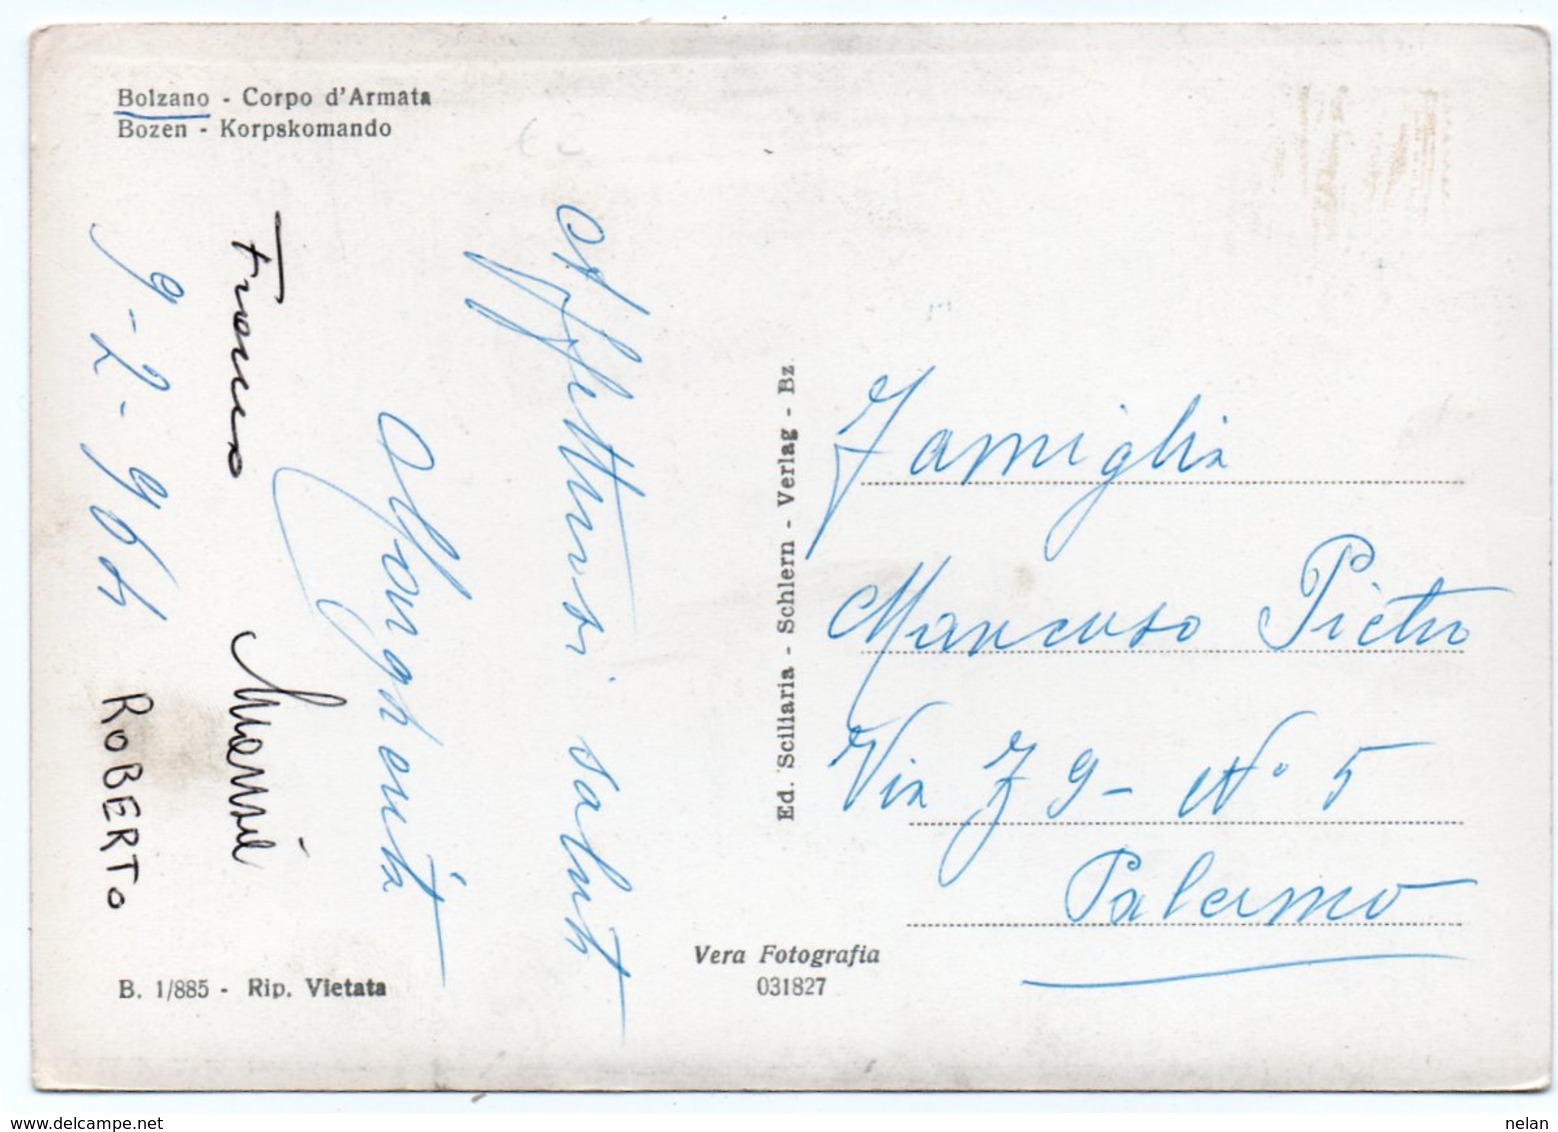 Bolzano - Corpo d'Armata
Bozen - Korpskomando
Affettuosi saluti
Franco
9-2-964
ROBERTO
B. 1/885 - Rip. Vietata
Ed. Sciliaria - Schlern - Verlag - Bz
Vera Fotografia
031827
Famiglia
Mancuso Pietro
Via Z 9 - N° 5
Palermo
www.delcampe.net
nelan